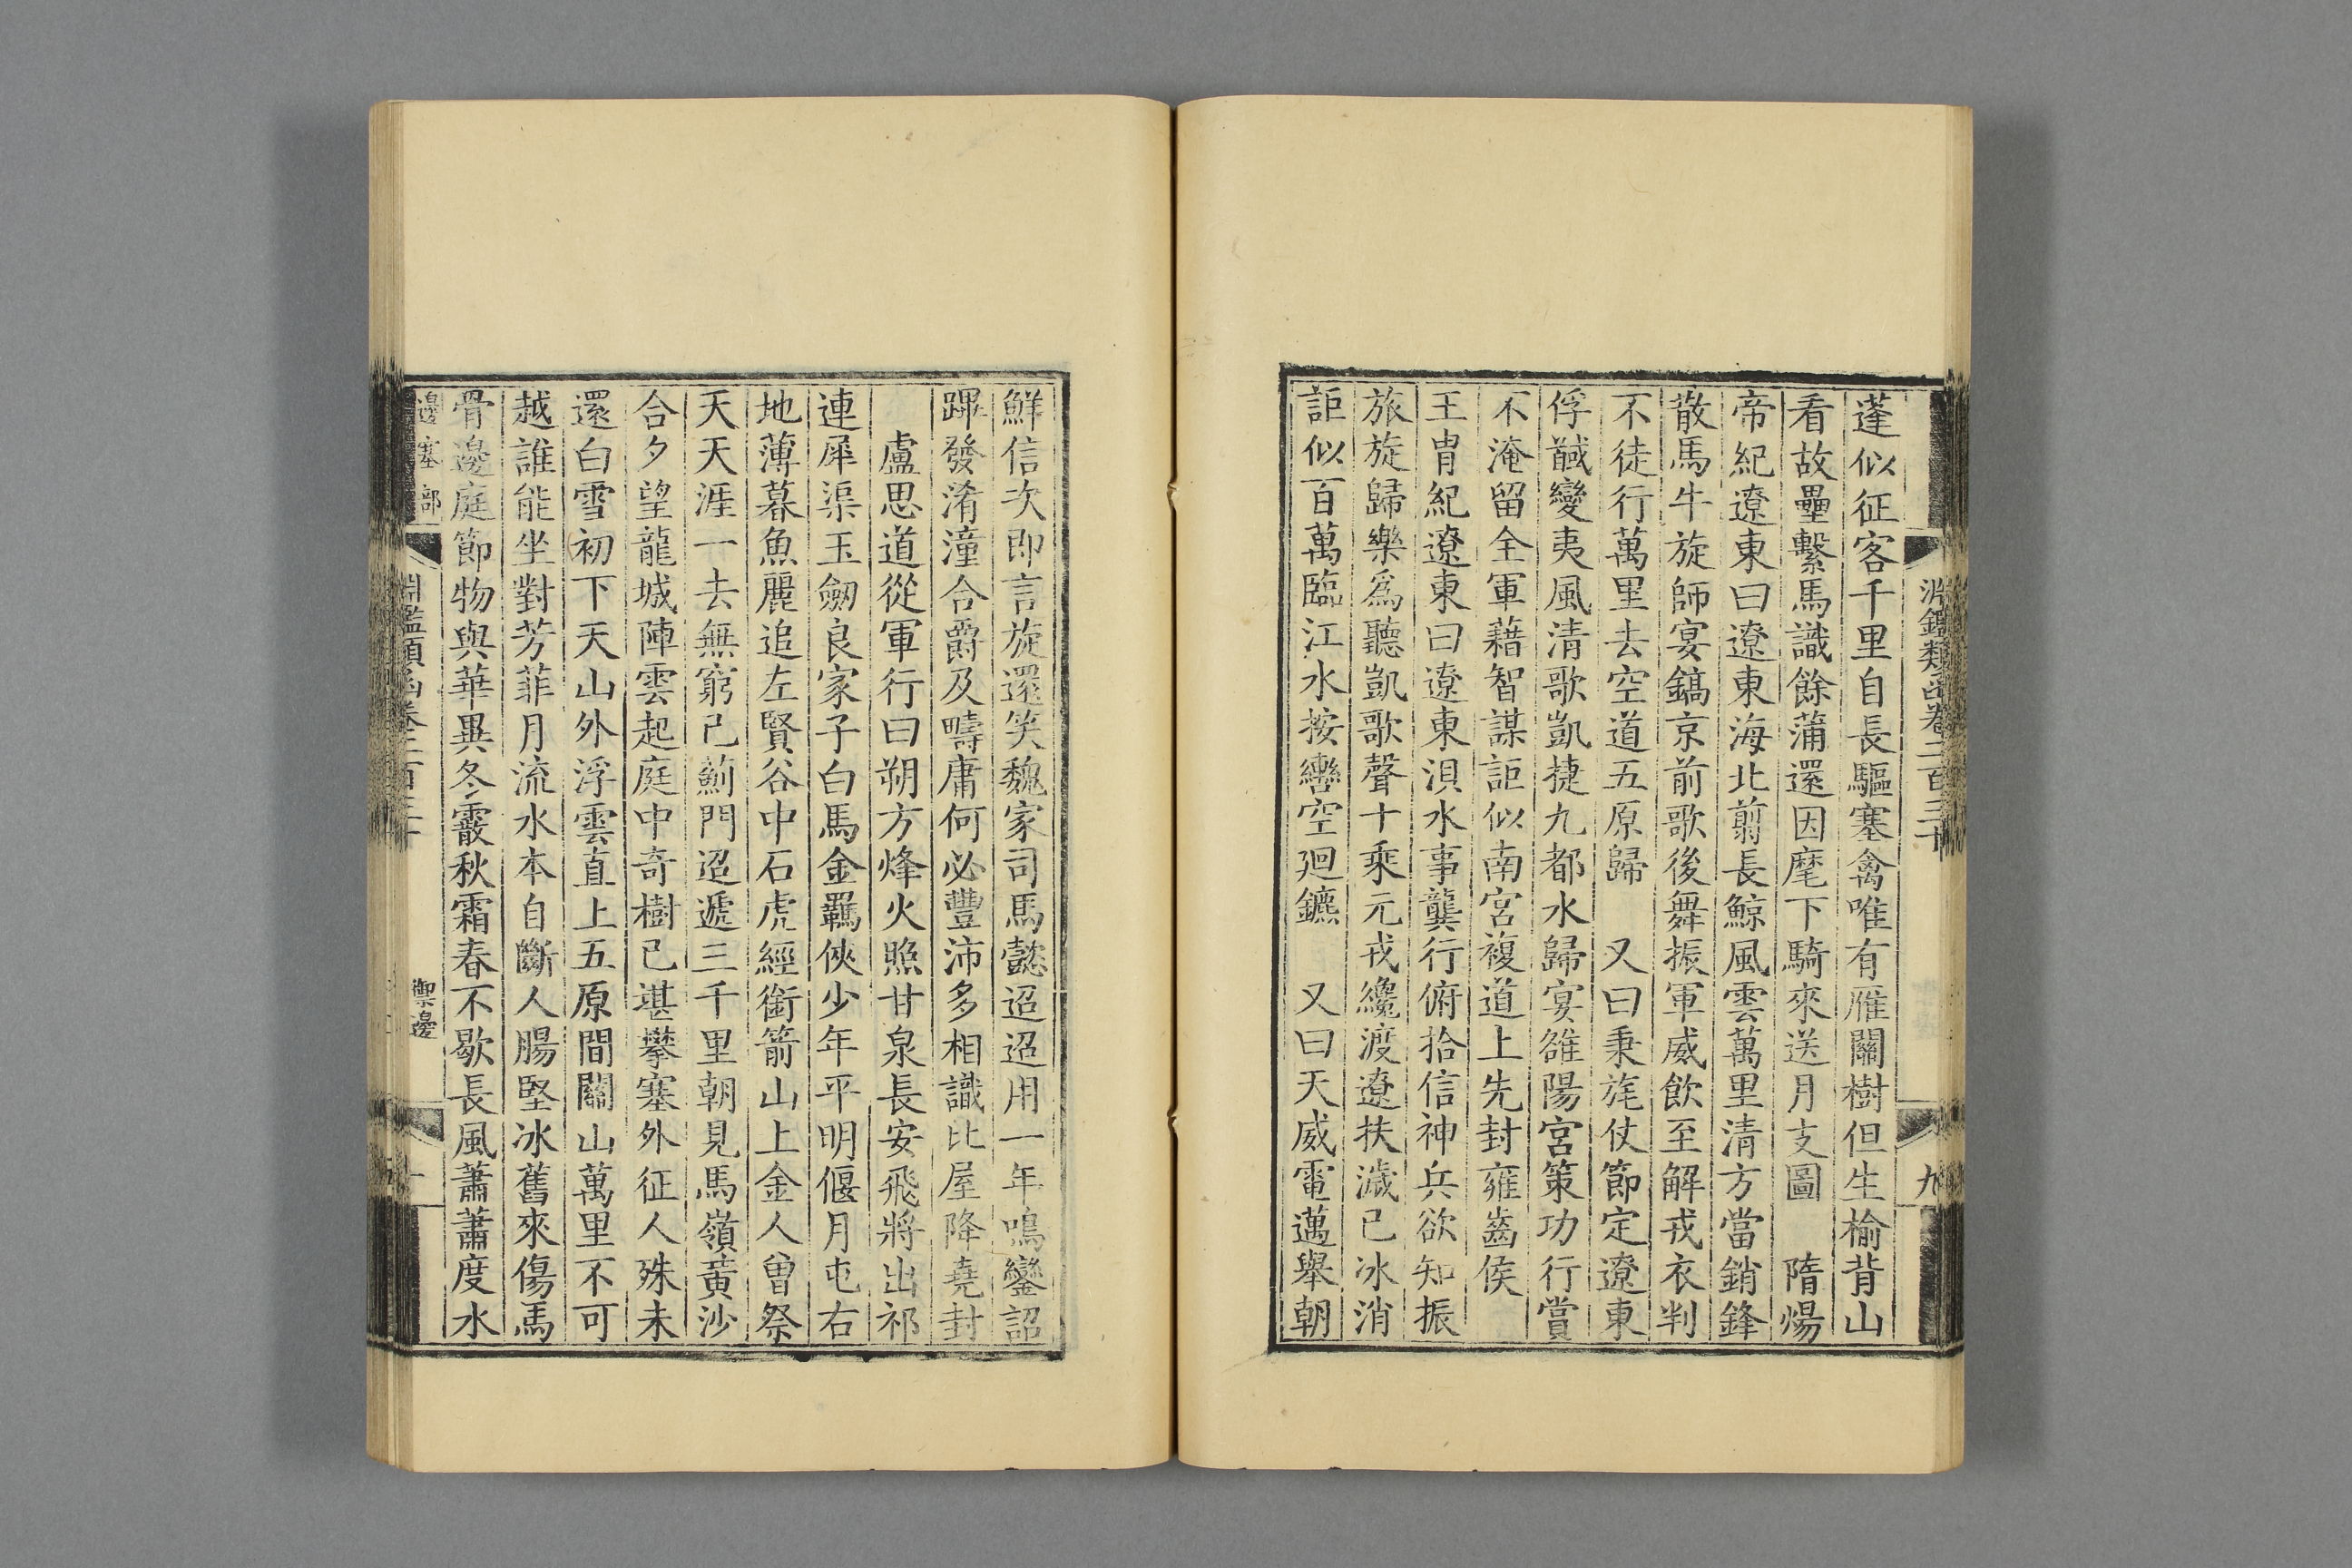 淵鑑類函卷二百三十
九
蓬似征客千里自長驅塞禽唯有雁關樹但生榆背山
看故壘繫馬識餘蒲還因麾下騎來送月支圖　隋煬
帝紀遼東曰遼東海北翦長鯨風雲萬里清方當銷鋒
散馬牛旋師宴鎬京前歌後舞振軍威飲至解戎衣判
不徒行萬里去空道五原歸　又曰秉旄仗節定遼東
俘馘變夷風清歌凱捷九都水歸宴雒陽宮策功行賞
不淹留全軍藉智謀詎似南宮複道上先封雍齒侯
王胄紀遼東曰遼東浿水事龔行俯拾信神兵欲知振
旅旋歸樂爲聽凱歌聲十乘元戎纔渡遼扶濊已冰消
詎似百萬臨江水按轡空迴鑣　又曰天威電邁舉朝
鮮信次即言旋還笑魏家司馬懿迢迢用一年鳴鑾詔
蹕發淆潼合爵及疇庸何必豐沛多相識比屋降堯封
盧思道從軍行曰朔方烽火照甘泉長安飛將出祁
連犀渠玉劒良家子白馬金羈俠少年平明偃月屯右
地薄暮魚麗追左賢谷中石虎經銜箭山上金人曾祭
天天涯一去無窮已薊門迢遞三千里朝見馬嶺黃沙
合夕望龍城陣雲起庭中奇樹已堪攀塞外征人殊未
還白雪初下天山外浮雲直上五原間關山萬里不可
越誰能坐對芳菲月流水本自斷人腸堅冰舊來傷馬
骨邊庭節物與華異冬霰秋霜春不歇長風蕭蕭度水
邊塞部
淵鑑類函卷二百三十
禦邊